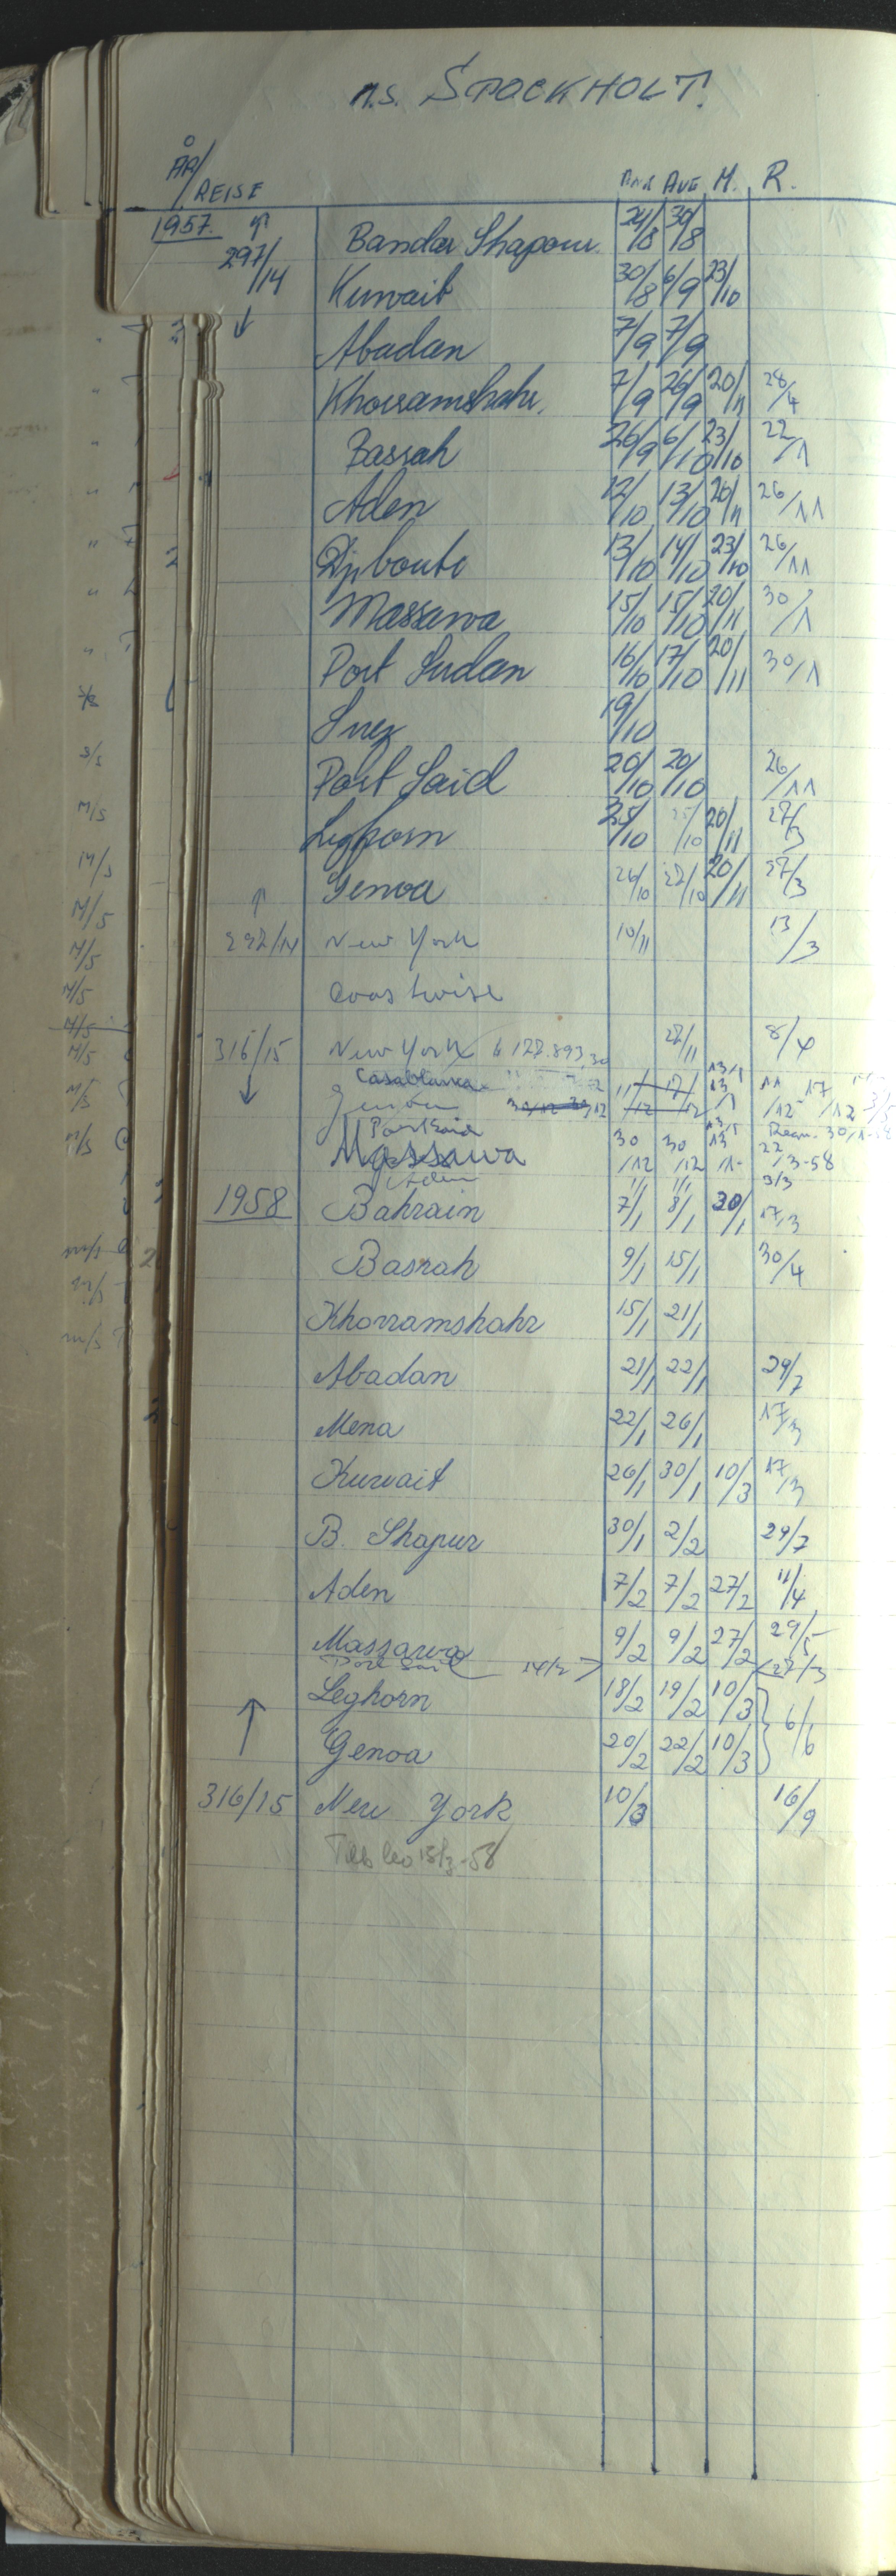 M.S. STOCKHOLT.
ÅR/REISE ANK AVG M. R.
1957. 297/14 Bandar Shapour. 24/8 30/8
Kuwait 30/8 6/9 23/10
Abadan 7/9 7/9
Khorramshahr. 7/9 26/9 20/11 28/4
Bassah 26/9 6/10 23/10 22/1
Aden 12/10 13/10 20/11 26/11
Djibouti 13/10 14/10 23/10 26/11
Massawa 15/10 15/10 20/11 30/1
Port Sudan 16/10 17/10 20/11 30/1
Suez 19/10
Port Said 20/10 20/10 26/11
Leghorn 25/10 25/10 20/11 27/3
Genoa 26/10 27/10 20/11 27/3
297/14 New York 10/11 13/3
Coastwise
316/15 New York 27/11 8/4
Casablanca
Genoa 11/12 17/12 13/1 11/12 17/12
Port Said
Massawa 30/12 30/12 13/1 22/3-58
Aden 1/1 1/1 3/3
1958 Bahrain 7/1 8/1 30/1 17/3
Basrah 9/1 15/1 30/4
Khorramshahr 15/1 21/1
Abadan 21/1 22/1 29/7
Mena 22/1 26/1 17/3
Kuwait 26/1 30/1 10/3 17/3
B. Shapur 30/1 2/2 29/7
Aden 7/2 7/2 27/2 11/4
Massawa 9/2 9/2 27/2 29/5
Port Said 14/2 27/3
Leghorn 18/2 19/2 10/3 6/6
Genoa 20/2 22/2 10/3
316/15 New York 10/3 16/9